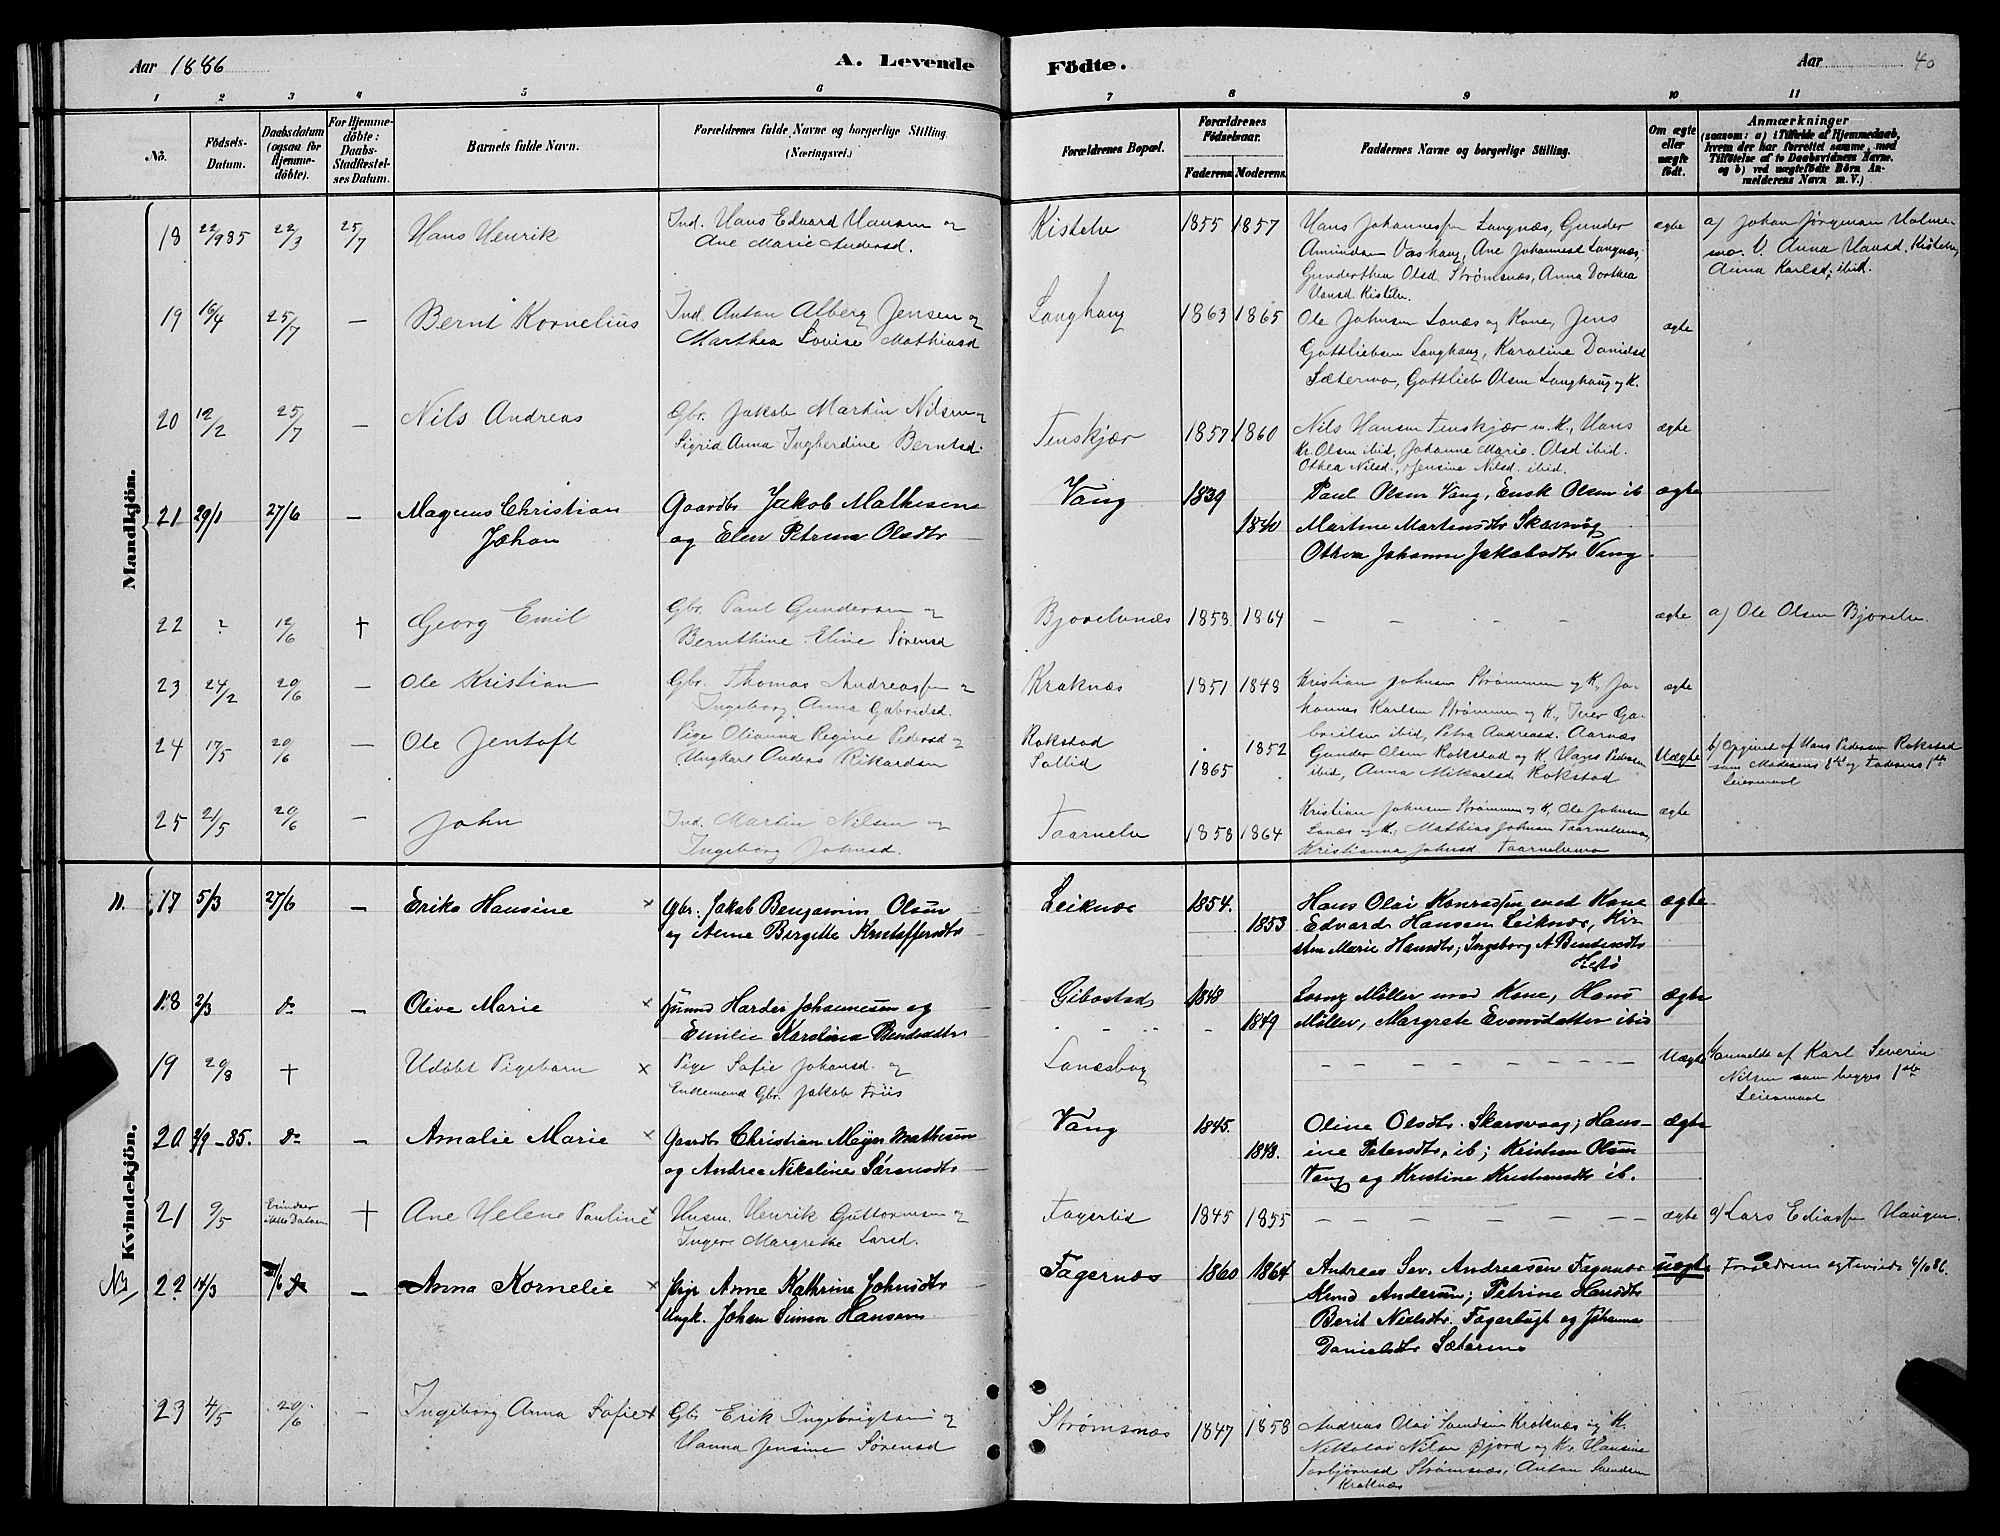 Aar 1886
A. Levende
Födte.
Aar 40
1 2 3 4 5 6 7 8 9 10 11
No.
Födsels-
Datum.
Daabsdatum
(ogsaa for
Hjemme-
döbte).
For Hjemme-
döbte:
Daabs-
Stadfæstel-
ses Datum.
Barnets fulde Navn.
Forældrenes fulde Navne og borgerlige Stilling.
(Næringsvei.)
Forældrenes Bopæl.
Forældrenes
Födselsaar.
Faderens. Moderens.
Faddernes Navne og borgerlige Stilling.
Om ægte
eller
uægte
födt.
Anmærkninger
(saasom: a) i Tilfælde af Hjemmedaab,
hvem der har forrettet samme, med
Tilföielse af to Daabsvidners Navne.
og b) ved uægtefödte Börn An-
melderens Navn m. V.)
Mandkjön.
18 22/9 85 22/3 25/7 Hans Henrik
Ind. Hans Edvard Hansen og
Ane Marie Andersd.
Kistelv 1855 1857
Hans Johannessen Langnæs, Gunder
Amundsen Vashaug, Ane Johannesd Langnæs,
Gunderthea Olsd. Strømsnæs, Anna Dorthea
Hansd. Kistelv.
ægte
a) Johan Jørgman Holme-
mo. V. Anna Hansd. Kistelv,
Anna Karlsd, ibid.
19 16/4 25/7 — Bernt Kornelius
Ind. Anton Alberg Jensen og
Marthea Lovise Mathiasd
Langhaug 1863 1865
Ole Johnsen Lanæs og Kone, Jens
Gottliebsen Langhaug, Karoline Danielsd
Sætermo, Gottlieb Olsen Langhaug og K.
ægte
20 12/2 25/7 — Nils Andreas
Gbr. Jakob Martin Nilsen og
Sigrid Anna Ingberdine Berntsd.
Tenskjær 1857 1860
Nils Hansen Tenskjær m. K., Hans
Kr. Olsen ibid, Johanne Marie Olsd ibid.
Othea Nilsd., Jensine Nilsd. ibid.
ægte
21 29/1 27/6 — Magnus Christian
Johan
Gaardbr Jakob Mathisen
og Elen Petrina Olsdtr
Vang 1839
1840
Paul Olsen Vang, Enok Olsen ib
Martine Martinsdtr Skarsvåg
Othea Johanna Jakobsdtr Vang.
ægte
22 ? 12/6 † Georg Emil
Gbr. Paul Gundersen og
Bernthine Eline Sørensd
Bjorelvnæs 1853 1864
— — — —
ægte
a) Ole Olsen Bjorelv
23 24/2 20/6 — Ole Kristian
Gbr. Thomas Andreassen og
Ingeborg Anna Gabrielsd.
Kraknæs 1851 1848
Kristian Johnsen Strømmen og K, Jo-
hannes Karlsen Strømmen og K., Iver Ga-
brielsen ibid, Petra Andreasd. Aarnæs
ægte
24 17/5 20/6 — Ole Jentoft
Pige Olianna Regine Pedersd og
Ungkarl Anders Rikardsen
Rokstad
Sollid
1865 1852
Gunder Olsen Rokstad og K. Hans Pedersen
ibid, Anna Mikalsd Rokstad
Uægte
b) Opgivet af Hans Pedersen Rokstad
som Moderens 3die og Faderens 1ste
Leiermaal
25 21/5 20/6 — John
Ind. Martin Nilsen og
Ingeborg Johnsd.
Taarnelv 1858 1864
Kristian Johnsen Strømmen og K, Ole Johnsen
Lanæs og K., Mathias Johnsen Taarnelvmo,
Kristianna Johnsd Taarnelvmo
ægte
Kvindekjön.
11.
17 5/3 27/6 — Erika Hansine ×
Gbr. Jakob Benjamin Olsen
og Anne Birgitte Kristoffersdtr
Leiknæs 1854.
1853
Hans Olai Konradsen med Kone
Edvard Hansen Leiknæs, Kir-
sten Marie Hansdtr; Ingeborg A Bentsendtr
ægte
18 2/3 do — Olive Marie ×
Harder Johannesen og
Emilie Karolina Bendixdtr
Gibostad 1848
1849
Lorng Möller med Kone, Hans
Möller, Margrete Evensdatter ibid
ægte
19 20/3 † Udöbt Pigebarn ×
Pige Sofie Johansd. og
Enkemand Gbr. Jakob Friis
Lanesbog
— — — —
Uægte
Anmeldt af Karl Severin
Nilsen som begges 1ste
Leiermaal
20 2/9 – 85. do — Amalie Marie ×
Gaardbr Christian Meyer Mathisen
og Andrea Nikoline Sörensdtr
Vang 1845.
1848.
Oline Olsdtr. Skarsvaag; Hans-
ine Petersdtr. ib; Kristen Olsen
Vang og Kristine Kristensdtr ib.
ægte
21 9/5 Erindrer
ikke Datoen † Ane Helene Pauline ×
Husm. Henrik Guttormsen og
Inger Margrethe Larsd.
Fagerlid 1845 1855
— — — —
ægte
a) Lars Ediassen Haugen.
NB
22 14/3 27/6 — Anna Kornelie ×
Pige Anne Kathrine Johnsdtr
Ungk. Johan Simon Hansen
Fagernæs 1860 1864
Andreas Sev. Andreasen Fagernæs
Amund Andersen; Petrine Hansdtr
Berit Nielsdtr. Fagerbugt og Johanna
Danielsdtr Sætermo
uægte
Forældrene egteviede 6/10 86.
23 4/5 20/6 — Ingeborg Anna Sofie ×
Gbr Erik Ingebrigtsen og
Hanna Jensine Sørensd
Strømsnæs 1847 1858
Andreas Olai Svendsen Kraknæs og K.
Nikolai Nilsen Gjord og K. Hansine
Torbjørnsd Strømsnæs, Anton Svendsen
Kraknæs